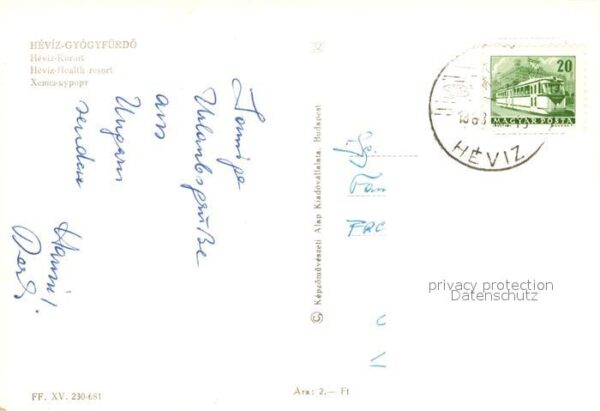 HÉVÍZ-GYÓGYFÜRDŐ
Hévíz-Kurort
Hévíz-Health resort
Хевиз-курорт
Sonnige
Urlaubsgrüße
aus
Ungarn
senden
FF. XV. 230-681
© Képzőművészeti Alap Kiadóvállalata, Budapest
Ára: 2,— Ft
20
MAGYAR POSTA
HÉVIZ
privacy protection
Datenschutz